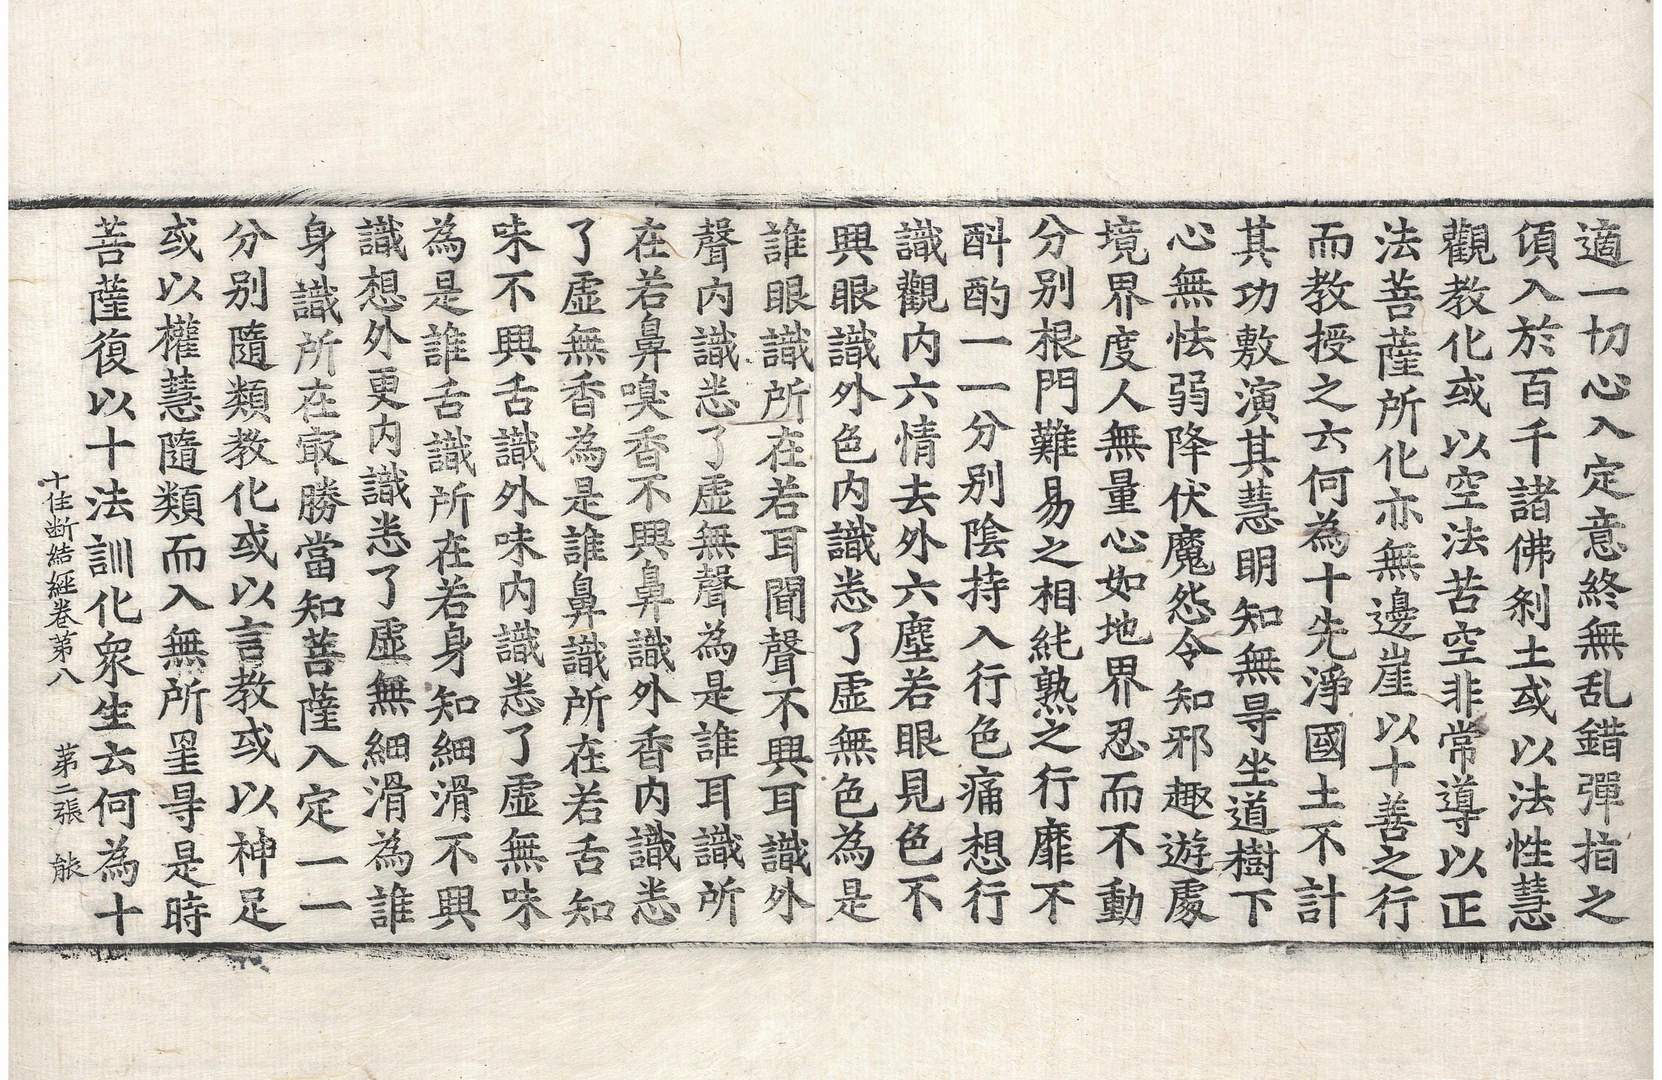 適一切心入定意終無乱錯彈指之
傾入於百千諸佛刹土或以法性慧
觀教化或以空法苦空非常導以正
法菩薩所化亦無邊崖以十善之行
而教授之云何為十先淨國土不計
其功敷演其慧明知無㝵坐道樹下
心無怯弱降伏魔怨令知邪趣遊處
境界度人無量心如地界忍而不動
分別根門難易之相純熟之行靡不
斟酌一一分別陰持入行色痛想行
識觀内六情去外六塵若眼見色不
興眼識外色内識悉了虛無色為是
誰眼識所在若耳聞聲不興耳識外
聲内識悉了虛無聲為是誰耳識所
在若鼻嗅香不興鼻識外香内識悉
了虛無香為是誰鼻識所在若舌知
味不興舌識外味内識悉了虛無味
為是誰舌識所在若身知細滑不興
識想外更内識悉了虛無細滑為誰
身識所在㝡勝當知菩薩入定一一
分別隨類教化或以言教或以神足
或以權慧隨類而入無所罣㝵是時
菩薩復以十法訓化衆生云何為十
十住断結經卷第八 第二張 能